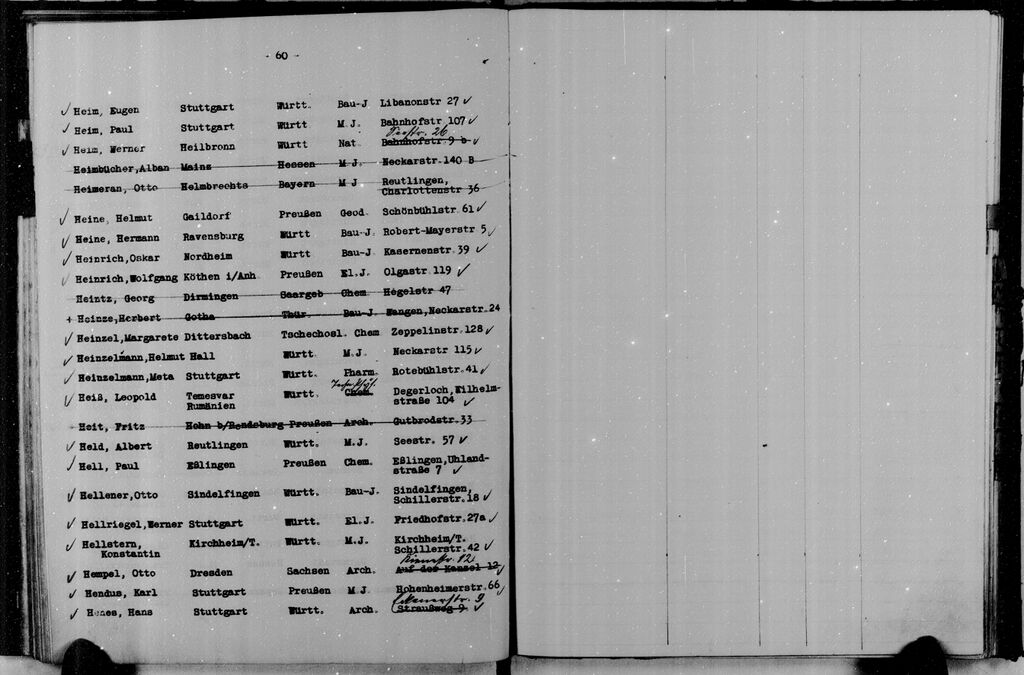 - 60 -
Heim, Eugen Stuttgart Württ. Bau-J Libanonstr 27 ✓
Heim, Paul Stuttgart Württ M.J. Bahnhofstr 107 ✓
26
Heim, Werner Heilbronn Württ Nat. Bahnhofstr 9 ✓
Heimbücher, Alban Mainz Hessen M J. Neckarstr. 140 B
Heimeran, Otto Helmbrechts Bayern M J Reutlingen,
Charlottenstr 36
Heine, Helmut Gaildorf Preußen Geod. Schönbühlstr. 61 ✓
Heine, Hermann Ravensburg Württ Bau-J. Robert-Mayerstr 5 ✓
Heinrich, Oskar Nordheim Württ Bau-J Kasernenstr. 39 ✓
Heinrich, Wolfgang Köthen i/Anh Preußen El.J. Olgastr. 119 ✓
Heintz, Georg Dirmingen Saargeb Chem Hegelstr 47
+ Heinze, Herbert Gotha Thür. Bau-J. Wangen, Neckarstr. 24
Heinzel, Margarete Dittersbach Tschechosl. Chem Zeppelinstr. 128 ✓
Heinzelmann, Helmut Hall Württ M.J. Neckarstr 115 ✓
Heinzelmann, Meta Stuttgart Württ. Pharm. Rotebühlstr. 41 ✓
Heiß, Leopold Temesvar Württ. Chem. Degerloch, Wilhelm-
Rumänien straße 104 ✓
Heit, Fritz Hohn b/Rendsburg Preußen Arch. Gutbrodstr. 33
Held, Albert Reutlingen Württ. M.J. Seestr. 57 ✓
Hell, Paul Eßlingen Preußen Chem. Eßlingen, Uhland-
straße 7 ✓
Hellener, Otto Sindelfingen Württ. Bau-J. Sindelfingen,
Schillerstr. 18 ✓
Hellriegel, Werner Stuttgart Württ. El.J. Friedhofstr. 27a ✓
Hellstern, Kirchheim/T. Württ. M.J. Kirchheim/T.
Konstantin Schillerstr. 42 ✓
12
Hempel, Otto Dresden Sachsen Arch. Auf der Kanzel 12 ✓
Hendus, Karl Stuttgart Preußen M J Hohenheimerstr. 66 ✓
Eckenerstr. 9
Henes, Hans Stuttgart Württ. Arch. Straußweg 9 ✓